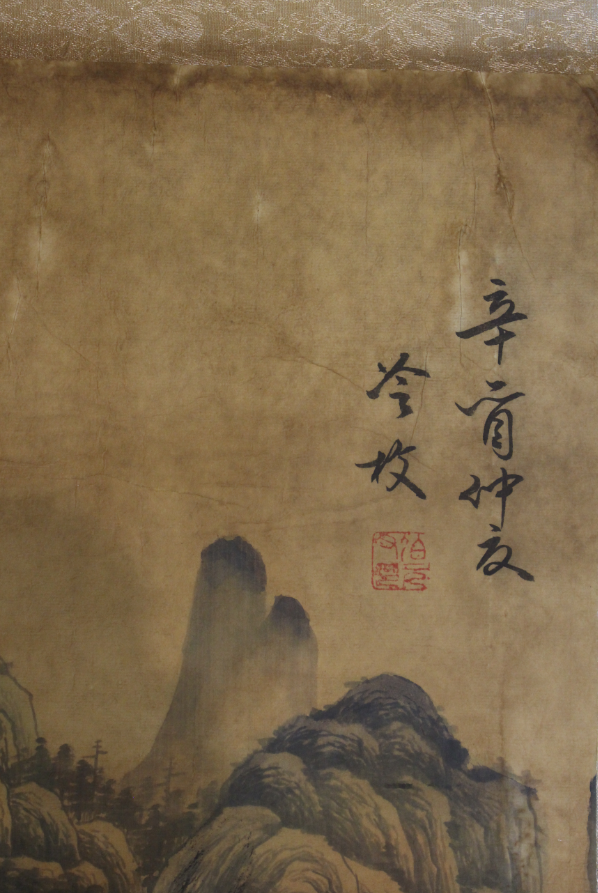 辛酉仲夏
冷枚